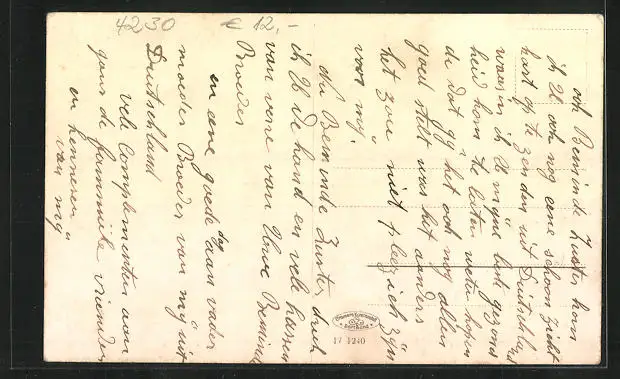 4230
€ 12,-
och Beminde Zuster hem
ik U och nog eene schoon zicht
kart op te zenden uit Duitschland
waar in ik U mijne beste gezond
heid kom te laten weten hopen
de dat gy het ook nog allen
goed stelt was het anders
het zou niet plezich zijn
voor mij.
dus Beminde Zuster druk
ik U de hand en vele kussen
van verre van Uwe Beminde
Broeder
en eene goede dag aan vader
moeder Broeders van mij uit
Deutschland
vele Complementen aan
gans de fammielie vrienden
en kennesen
van mij
17 1240